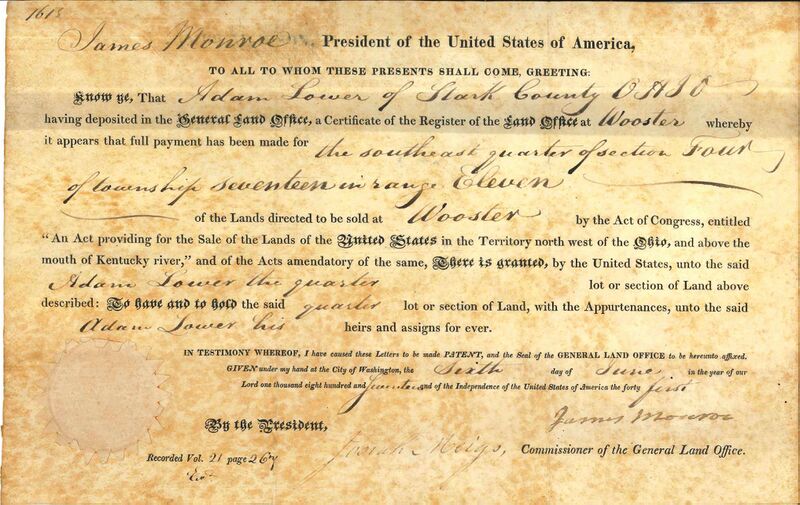 1618
James Monroe President of the United States of America,
TO ALL TO WHOM THESE PRESENTS SHALL COME, GREETING:
Know ye, That Adam Lower of Stark County OHIO
having deposited in the General Land Office, a Certificate of the Register of the Land Office at Wooster whereby
it appears that full payment has been made for the southeast quarter of section Four
of township seventeen in range Eleven
of the Lands directed to be sold at Wooster by the Act of Congress, entitled
"An Act providing for the Sale of the Lands of the United States in the Territory north west of the Ohio, and above the
mouth of Kentucky river," and of the Acts amendatory of the same, There is granted, by the United States, unto the said
Adam Lower the quarter lot or section of Land above
described: To have and to hold the said quarter lot or section of Land, with the Appurtenances, unto the said
Adam Lower his heirs and assigns for ever.
IN TESTIMONY WHEREOF, I have caused these Letters to be made PATENT, and the Seal of the GENERAL LAND OFFICE to be hereunto affixed.
GIVEN under my hand at the City of Washington, the Sixth day of June in the year of our
Lord one thousand eight hundred and seventeen and of the Independence of the United States of America the forty first
James Monroe
By the President,
Josiah Meigs, Commissioner of the General Land Office.
Recorded Vol. 21 page 267